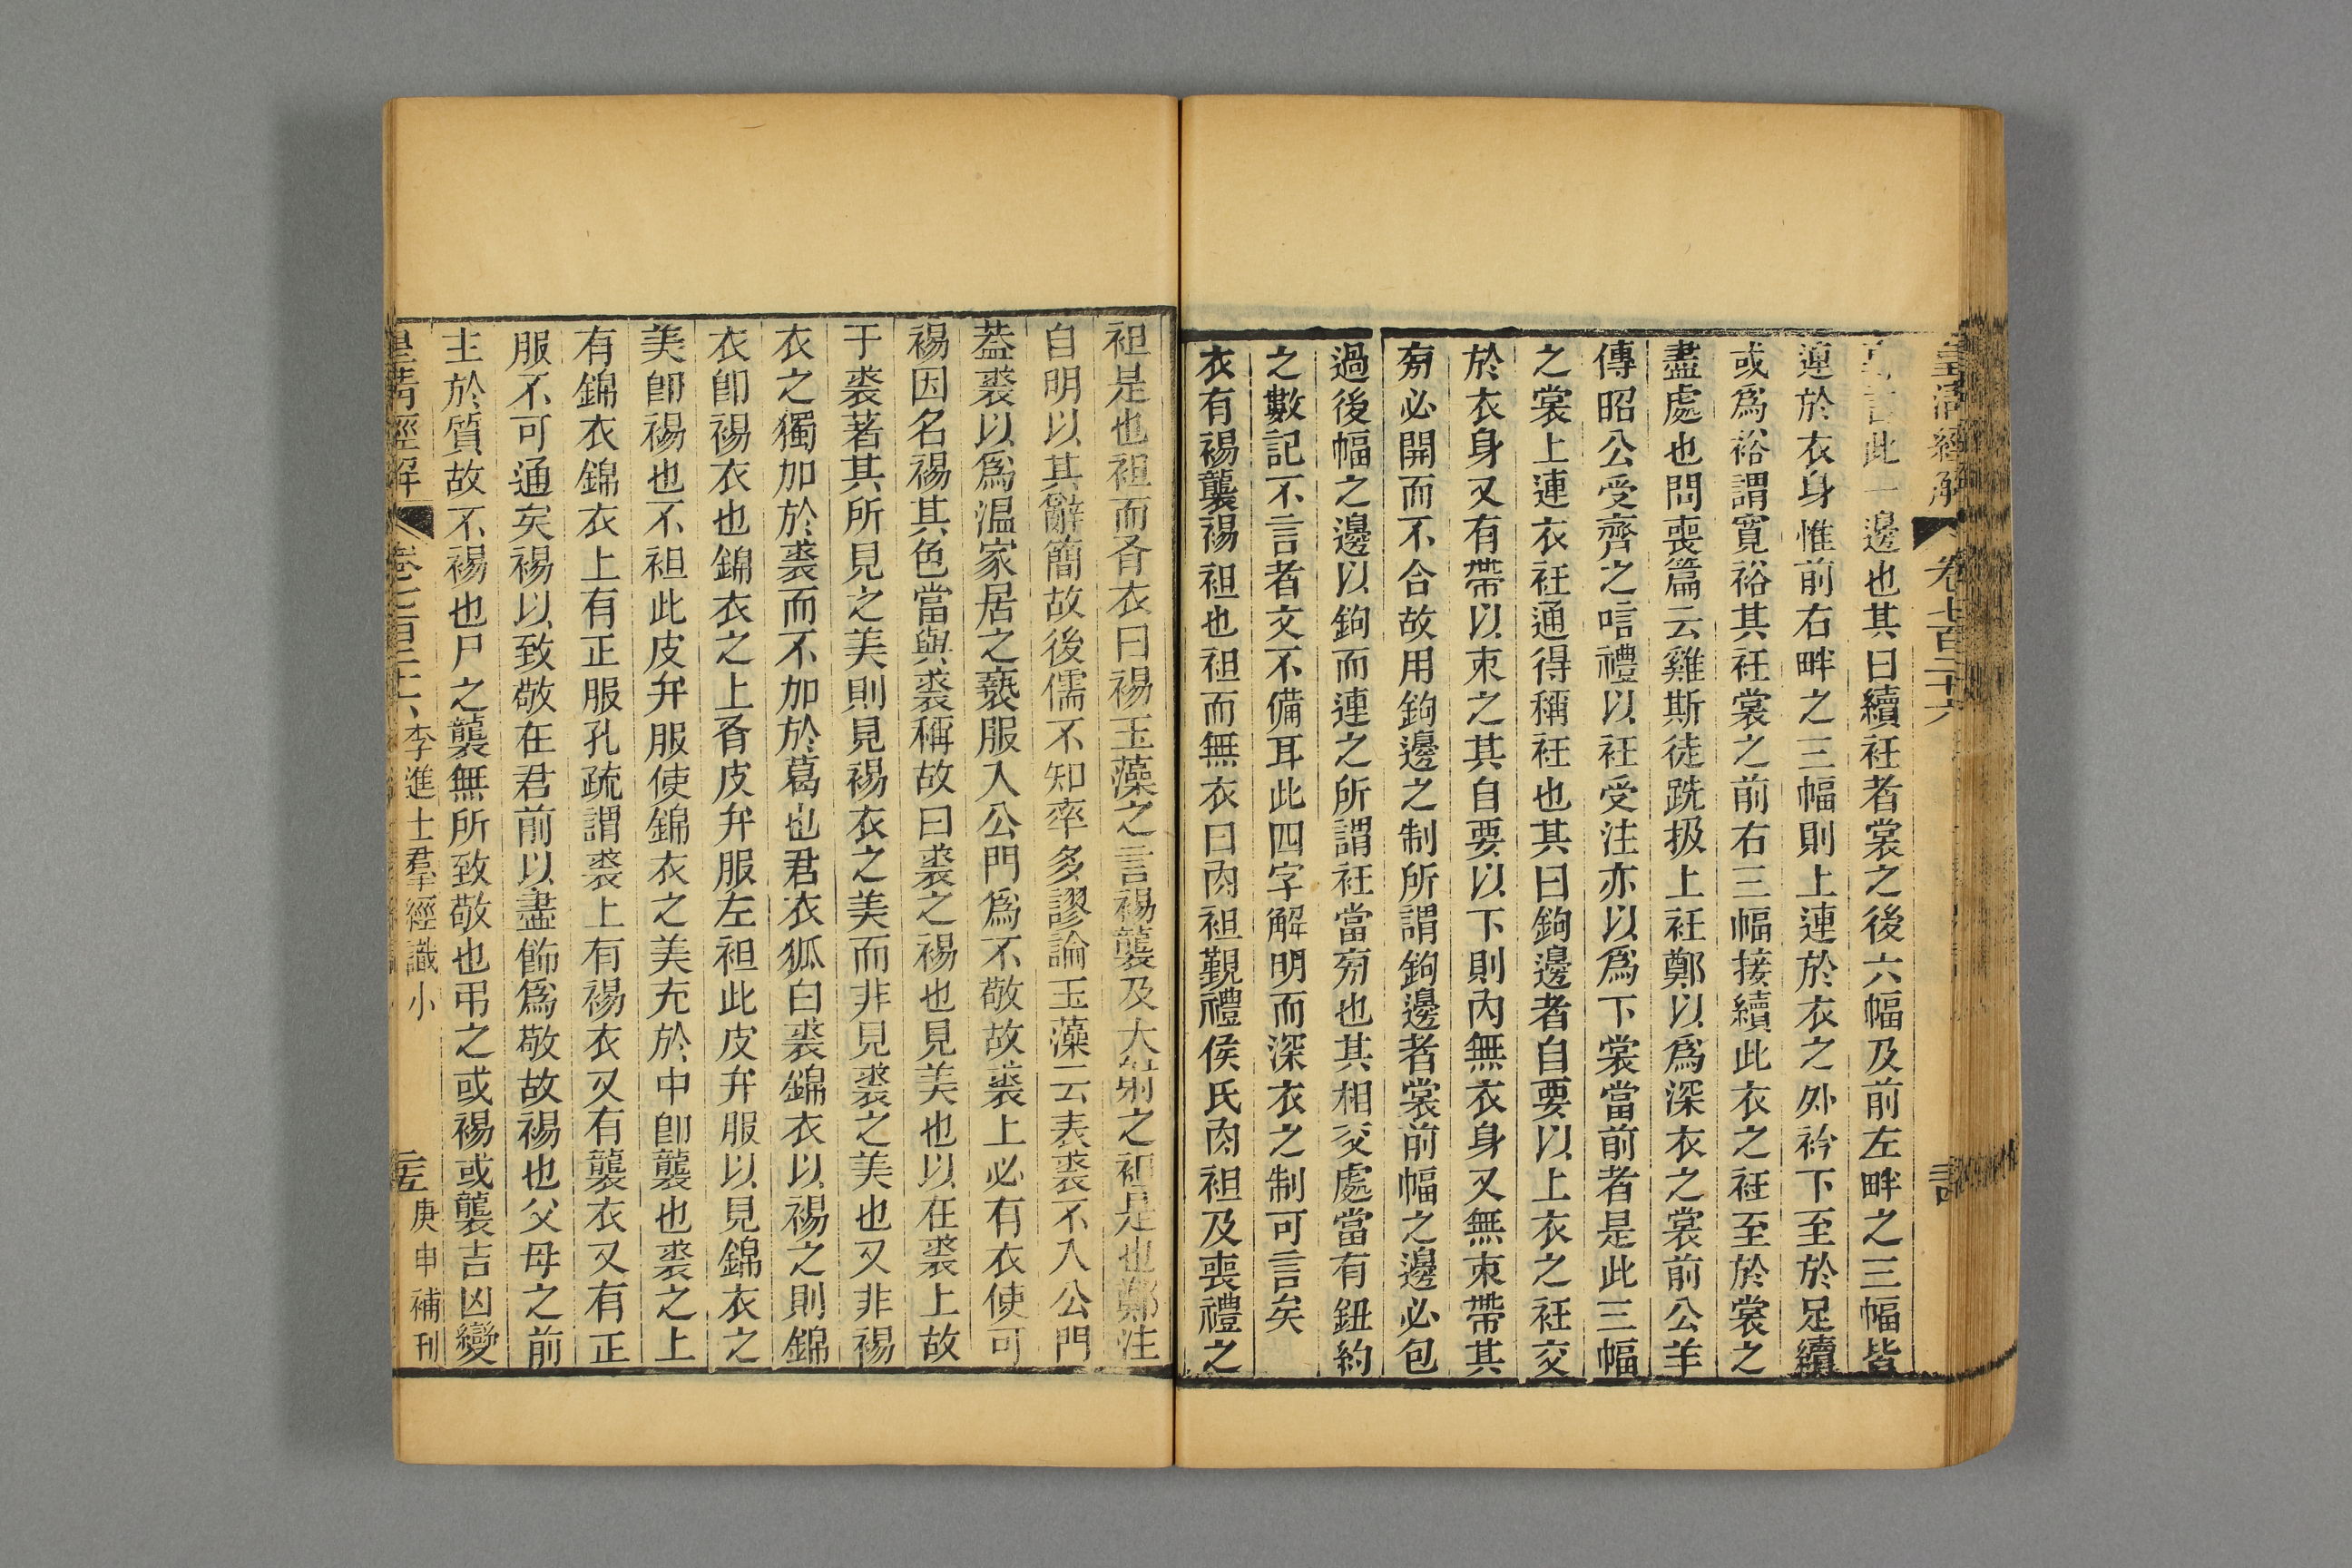 皇清經解 卷七百二十六
言此一邊也其曰續衽者裳之後六幅及前左畔之三幅皆
連於衣身惟前右畔之三幅則上連於衣之外衿下至於足續
或爲裕謂寬裕其衽裳之前右三幅接續此衣之衽至於裳之
盡處也問喪篇云雞斯徒跣扱上衽鄭以爲深衣之裳前公羊
傳昭公受齊之唁禮以衽受注亦以爲下裳當前者是此三幅
之裳上連衣衽通得稱衽也其曰鉤邊者自要以上衣之衽交
於衣身又有帶以束之其自要以下則內無衣身又無束帶其
旁必開而不合故用鉤邊之制所謂鉤邊者裳前幅之邊必包
過後幅之邊以鉤而連之所謂衽當旁也其相交處當有鈕約
之數記不言者文不備耳此四字解明而深衣之制可言矣
衣有裼襲裼袒也袒而無衣曰肉袒覲禮侯氏肉袒及喪禮之
袒是也袒而有衣曰裼玉藻之言裼襲及大射之袒是也鄭注
自明以其辭簡故後儒不知率多謬論玉藻云表裘不入公門
葢裘以爲溫家居之褻服入公門爲不敬故裘上必有衣使可
裼因名裼其色當與裘稱故曰裘之裼也見美也以在裘上故
于裘著其所見之美則見裼衣之美而非見裘之美也又非裼
衣之獨加於裘而不加於葛也君衣狐白裘錦衣以裼之則錦
衣卽裼衣也錦衣之上有皮弁服左袒此皮弁服以見錦衣之
美卽裼也不袒此皮弁服使錦衣之美充於中卽襲也裘之上
有錦衣錦衣上有正服孔疏謂裘上有裼衣又有襲衣又有正
服不可通矣裼以致敬在君前以盡飾爲敬故裼也父母之前
主於質故不裼也尸之襲無所致敬也弔之或裼或襲吉凶變
皇清經解 卷七百二十六 李進士羣經識小 庚申補刊